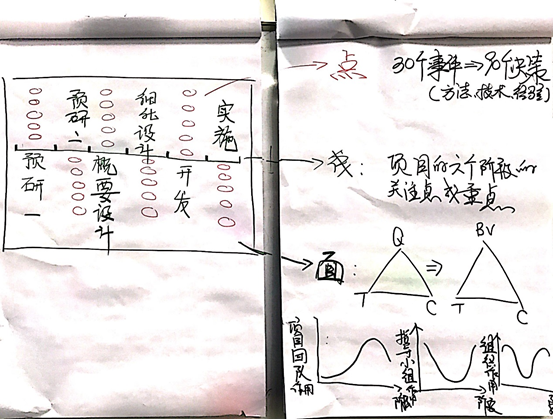 预研一
预研二
概要设计
细化设计
开发
实施
点
30个事件⇒90个决策
(方法、技术、经验)
线:
项目的六个阶段的
关注点或重点
面:
Q
T
C
⇒
BV
T
C
项目团队作用
阶段
指导小组作用
阶段
组织作用